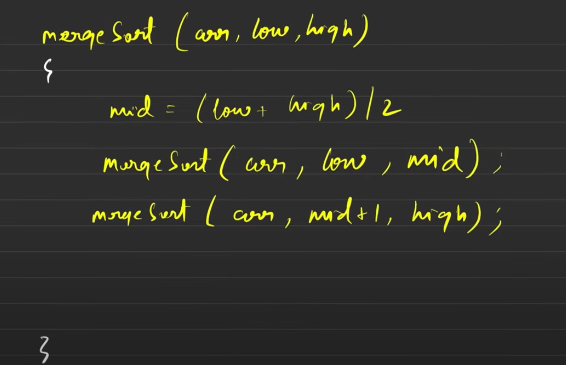 mergeSort (arr, low, high)
{
mid = (low + high)/2
mergeSort ( arr, low, mid) ;
mergeSort ( arr, mid+1, high) ;
}